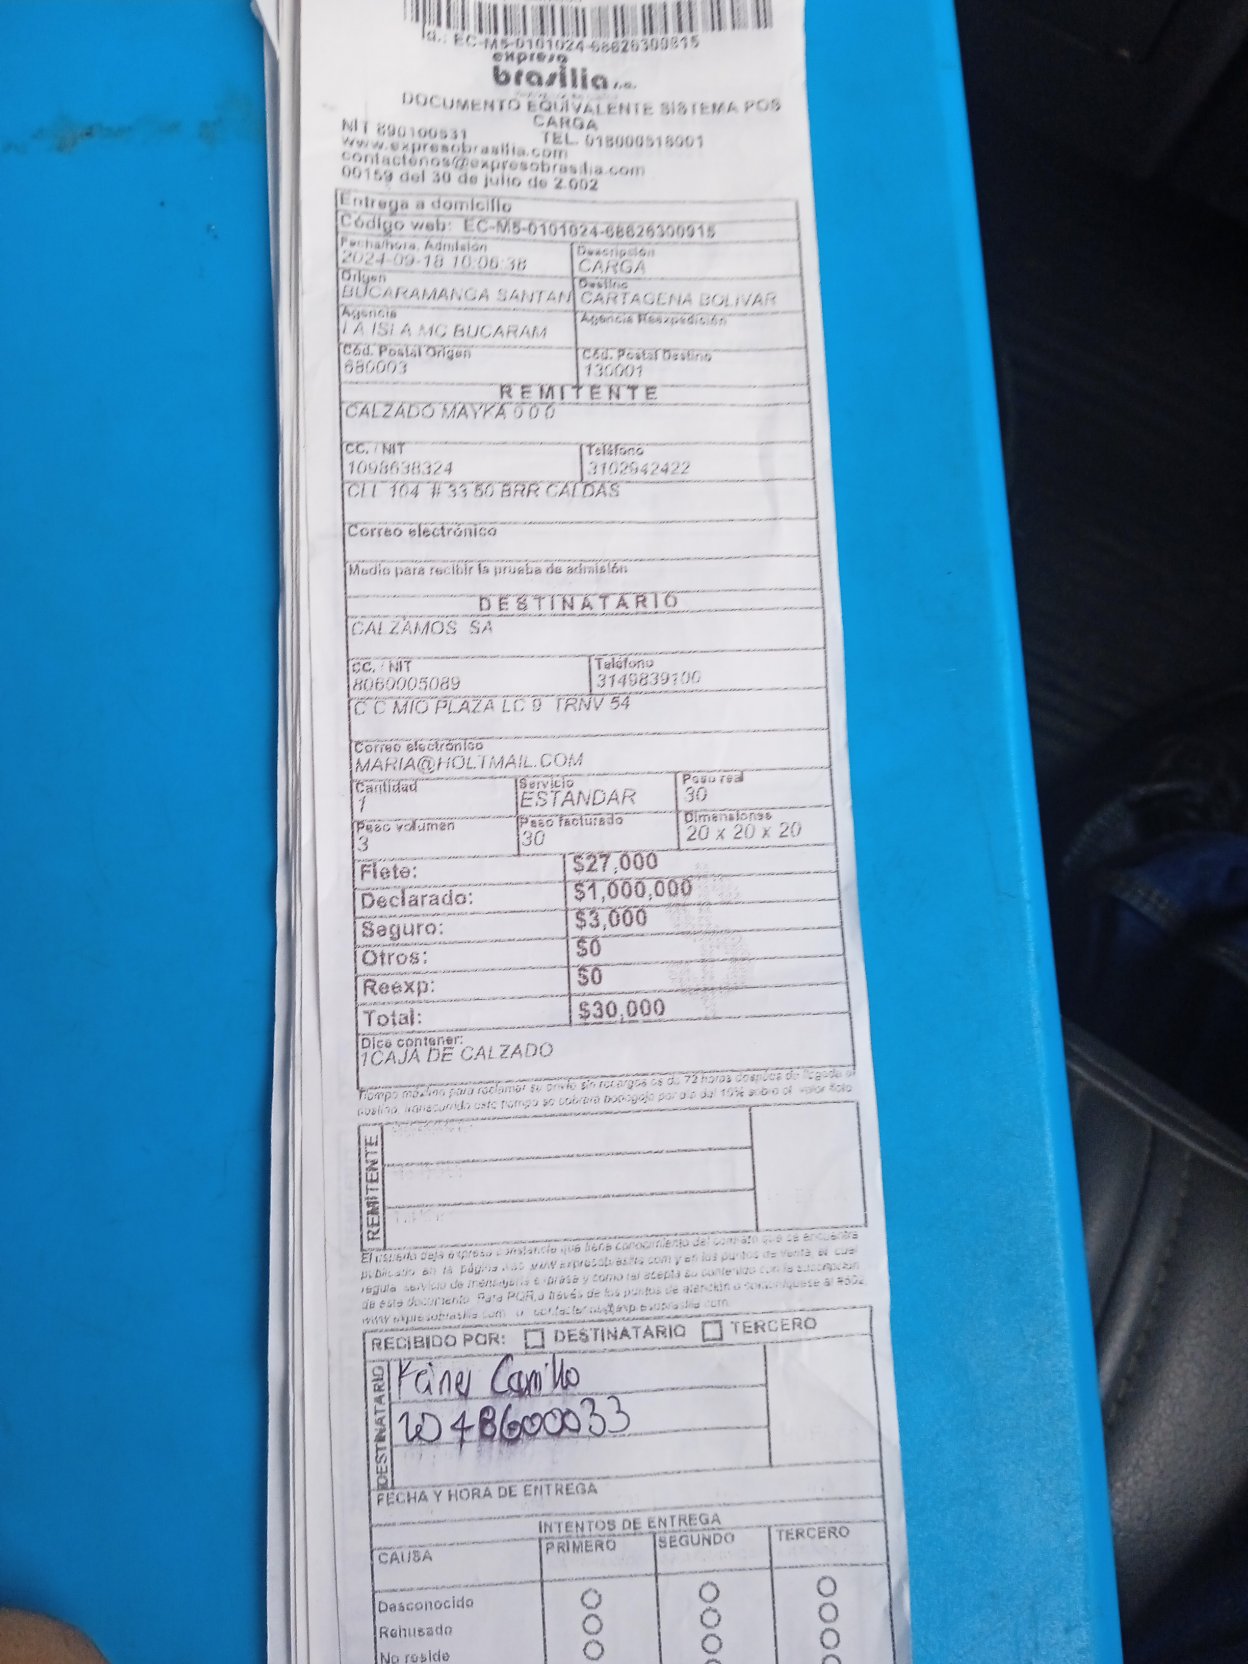 g.: EC-M5-0101024-68626300915
expreso
brasilia s.a.
DOCUMENTO EQUIVALENTE SISTEMA POS
CARGA
NIT 890100531 TEL. 018000518001
www.expresobrasilia.com
contactenos@expresobrasilia.com
00159 del 30 de julio de 2.002
Entrega a domicilio
Código web: EC-M5-0101024-68626300915
Fecha/hora. Admisión Descripción
2024-09-18 10:06:38 CARGA
Origen Destino
BUCARAMANGA SANTAN CARTAGENA BOLIVAR
Agencia Agencia Reexpedición
LA ISLA MC BUCARAM
Cód. Postal Origen Cód. Postal Destino
680003 130001
REMITENTE
CALZADO MAYKA 0 0 0
CC. / NIT Teléfono
1098638324 3102942422
CLL 104 # 33 50 BRR CALDAS
Correo electrónico
Medio para recibir la prueba de admisión
DESTINATARIO
CALZAMOS SA
CC. / NIT Teléfono
8060005089 3149839100
C C MIO PLAZA LC 9 TRNV 54
Correo electrónico
MARIA@HOLTMAIL.COM
Cantidad Servicio Peso real
1 ESTANDAR 30
Peso volumen Peso facturado Dimensiones
3 30 20 x 20 x 20
Flete: $27,000
Declarado: $1,000,000
Seguro: $3,000
Otros: $0
Reexp: $0
Total: $30,000
Dice contener:
1CAJA DE CALZADO
Tiempo máximo para reclamar su envío sin recargos es de 72 horas después de llegada al
destino, transcurrido este tiempo se cobrará bodegaje por día del 10% sobre el valor flete
REMITENTE
El usuario deja expresa constancia que tiene conocimiento del contrato que se encuentra
publicado en la página web www.expresobrasilia.com y en los puntos de venta, el cual
regula servicio de mensajería expresa y como tal acepta su contenido con la suscripción
de este documento. Para PQR a través de los puntos de atención o comuníquese al #502,
www.expresobrasilia.com o contactenos@expresobrasilia.com
RECIBIDO POR: DESTINATARIO TERCERO
DESTINATARIO
Keiner Carrillo
1048600033
FECHA Y HORA DE ENTREGA
INTENTOS DE ENTREGA
CAUSA PRIMERO SEGUNDO TERCERO
Desconocido
Rehusado
No reside